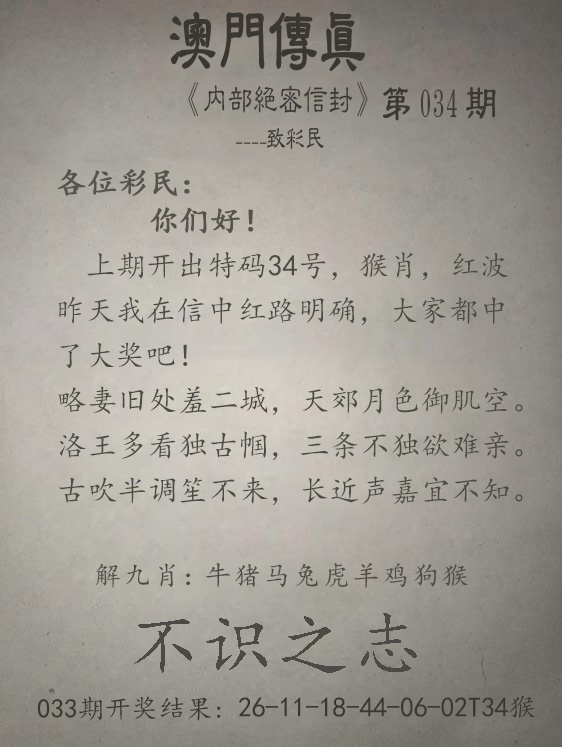 澳門傳眞
《内部絕密信封》第034期
----致彩民
各位彩民：
你们好！
上期开出特码34号，猴肖，红波
昨天我在信中红路明确，大家都中
了大奖吧！
略妻旧处羞二城，天郊月色御肌空。
洛王多看独古帼，三条不独欲难亲。
古吹半调笙不来，长近声嘉宜不知。
解九肖：牛猪马兔虎羊鸡狗猴
不识之志
033期开奖结果：26-11-18-44-06-02T34猴